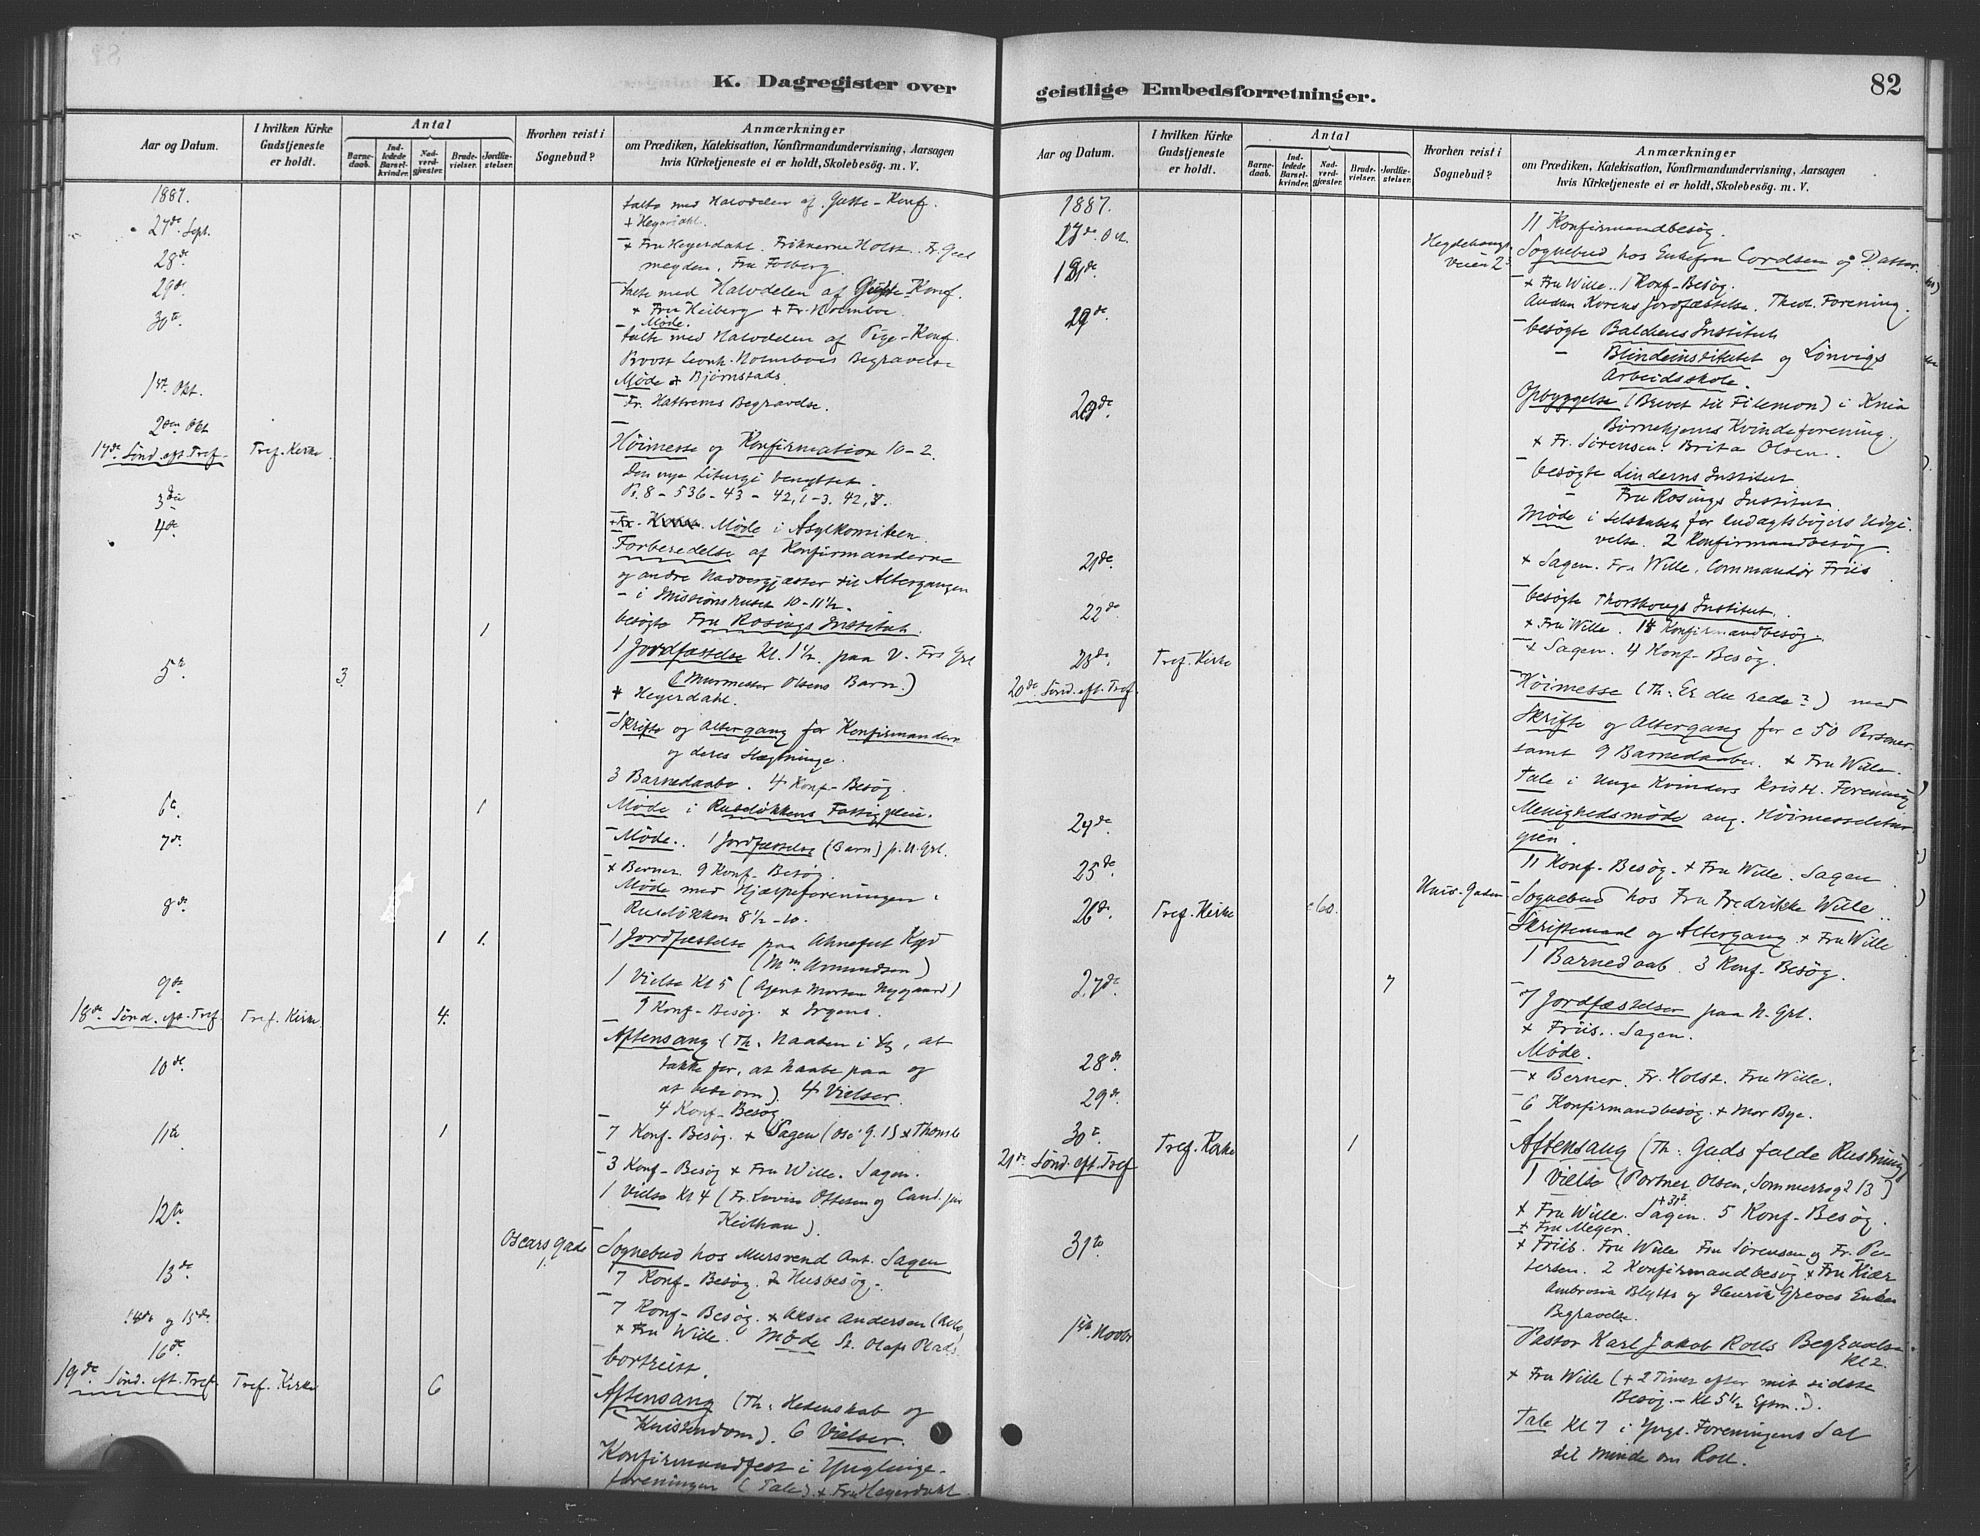 K. Dagregister over
Aar og Datum.
I hvilken Kirke Gudstjeneste er holdt.
Antal
Barnedaab.
Indledede Barselkvinder.
Nadverdgjæster.
Brudevielser.
Jordfæstelser.
Hvorhen reist i Sognebud?
Anmærkninger
om Prædiken, Katekisation, Konfirmandundervisning, Aarsagen
hvis Kirketjeneste ei er holdt, Skolebesøg. m. V.
1887.
27de Sept.
talte med Halvdelen af Gutte-Konf.
+ Heyerdahl.
28de
+ Fru Heyerdahl. Frøknerne Holst. Fr. Geelmeyden. Fru Folberg.
29de
talte med Halvdelen af Gutte-Konf.
+ Fru Heiberg + Fr. Holmboe.
30te
Møde.
talte med Halvdelen af Pige-Konf.
Provst Leonh. Holmboes Begravelse
Møde Bjørnstads.
1ste Okt.
Fr. Hattrems Begravelse.
2den Okt
17de Sønd. eft. Tref. Tref. Kirke
Høimesse og Konfirmation 10-2.
Den nye Liturgi benyttet.
Ps. 8 - 536 - 43 - 42,1-3. 42,
3die
Møde i Asylkomiteen.
4de
Forberedelse af Konfirmanderne
og andre Nadvergjæster til Altergangen
- i Missionshuset 10-11½.
besøgte Fru Rosings Institut.
1
1 Jordfæstelse Kl. 1½ paa V. Frs Grl
(Murmester Olsens Barn.)
5te 3
+ Heyerdahl.
Skrifte og Altergang for Konfirmanderne
og deres Slægtninge.
3 Barnedaabe. 4 Konf-Besøg.
6te 1
Møde i Ruseløkkens Fattigpleie.
7de
Møde. 1 Jordfæstelse (Barn) p. N. Grl.
+ Berner. 9 Konf-Besøg.
Møde med Hjælpeforeningen i
Ruseløkken 8½-10.
8de 1 1.
1 Jordfæstelse paa
(Mm Amundsen)
1 Vielse Kl 5 (Agent Morten Nygaard)
9 Konf-Besøg. + Irgens.
9de
18de Sønd. eft. Tref. Tref. Kirke 4.
Aftensang (Th: Naaden i , at
takke for, at haabe paa og
at bede om). 4 Vielser.
4 Konf-Besøg
10de
7 Konf-Besøg. + Sagen (Osc. g. 1)
11te 1
3 Konf-Besøg + Fru Wille. Sagen.
1 Vielse Kl 4 (Fr. Lovise Ottesen og Cand. jur
Keilhau).
12te Oscars Gade 1.
Sognebud hos Mursvend Ant. Sagen
7 Konf-Besøg. 2 Husbesøg.
13de
7 Konf-Besøg. + Aksel Andersen
+ Fru Wille. Møde St. Olafs Plads
14de og 15de
bortreist.
16de
19de Sønd. eft. Tref. Tref. Kirke 6
Aftensang (Th: Hedenskab og
Kristendom). 6 Vielser.
Konfirmandfest i Ynglinge-
foreningen (Tale). + Fru Heyerdahl.
geistlige Embedsforretninger.
82
Aar og Datum.
I hvilken Kirke Gudstjeneste er holdt.
Antal
Barnedaab.
Indledede Barselkvinder.
Nadverdgjæster.
Brudevielser.
Jordfæstelser.
Hvorhen reist i Sognebud?
Anmærkninger
om Prædiken, Katekisation, Konfirmandundervisning, Aarsagen
hvis Kirketjeneste ei er holdt, Skolebesøg. m. V.
1887.
17de Oct.
11 Konfirmandbesøg.
18de Hegdehaugsveien 2
Sognebud hos Enkefru Cordsen og Datter.
+ Fru Wille. 1 Konf-Besøg.
Jordfæstelse. Theol. Forening.
19de
besøgte Baldens Institut
- Blindeinstitutet og Lønvigs
Arbeidsskole.
20de
Opbyggelse (Brevet til Filemon) i
Børnehjems Kvindeforening.
+ Fr. Sørensen. Brita Olsen.
besøgte Linderns Institut
Fru Rosings Institut.
Møde i Selskabet for Andagtsbøgers Udgivelse. 2 Konfirmandbesøg.
21de
+ Sagen. Fru Wille, Commandør Friis
22de
besøgte Thorskougs Institut.
+ Fru Wille. 18 Konfirmandbesøg.
23de Tref. Kirke
+ Sagen. 4 Konf-Besøg.
20de Sønd. eft. Tref.
Høimesse (Th: Er du rede?) med
Skrifte og Altergang for c 50 Personer
samt 9 Barnedaabe. + Fru Wille.
Tale i Unge Kvinders Kristl. Forening
24de
Menighedsmøde ang. Høimesselitur-
gien.
25de
11 Konf-Besøg. + Fru Wille. Sagen.
26de Tref. Kirke c 60.
Sognebud hos Fru Fredrikke Wille.
Skriftemaal og Altergang + Fru Wille
1 Barnedaab. 3 Konf-Besøg.
27de 7
7 Jordfæstelser paa N. Grl.
+ Friis. Sagen.
Møde.
28de
+ Berner. Fr. Holst. Fru Wille.
29de
6 Konfirmandbesøg. + Mor Bye.
30te Tref. Kirke 1
21de Sønd. eft. Tref
Aftensang (Th: Guds fulde Rustning)
1 Vielse (Portner Olsen, Sommerrogt 13)
+ Fru Wille. Sagen. 5 Konf-Besøg.
+ Fru Meyer.
31te
+ Friis. Fru Wille Fru Sørensen og Fr. Pe-
tersen. 2 Konfirmandbesøg + Fru Kiær
Ambrosia Blytts og Henrik Greves Enkes
Begravelse.
1ste Novbr
Pastor Karl Jakob Rolls Begravelse
Kl 2.
+ Fru Wille (+ 2 Timer efter mit sidste
Besøg - Kl 5½ Eftm.).
Tale Kl 7 i Yngl. Foreningens Sal
til Minde om Roll.